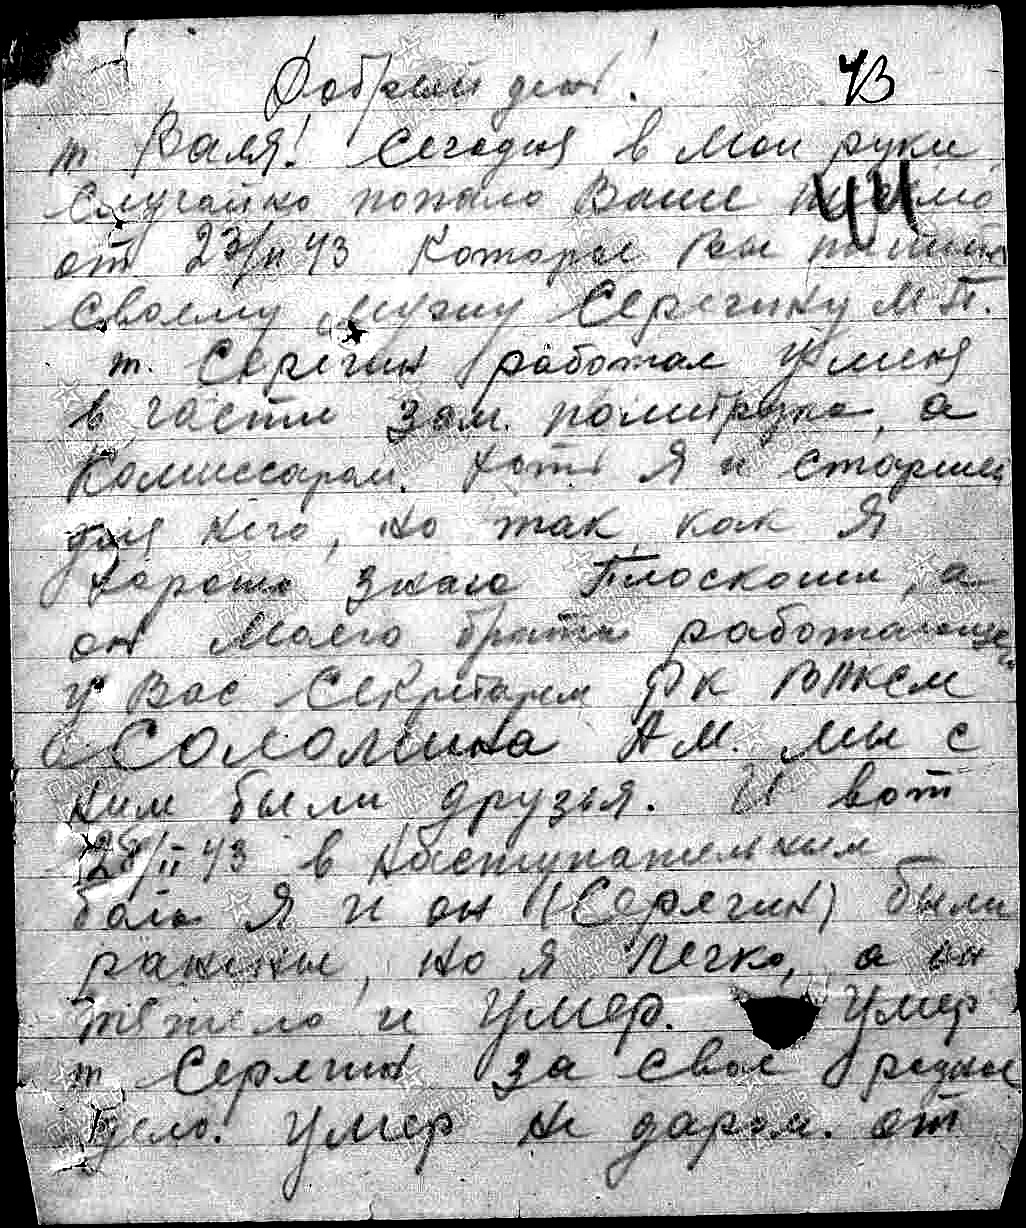 Добрый день!
43
т Валя! Сегодня в мои руки
случайно попало Ваше письмо
44
от 23/II 43 которое Вы пишите
своему мужу Серегину М П.
т. Серегин работал у меня
в части зам. политрука, а
комиссаром. хотя я и старше
для него, но так как я
хорошо знаю Плоскоши, а
он моего брата работающего
у Вас секретарем РК ВЛКСМ
Соломина А М. мы с
ним были друзья. И вот
28/II 43 в наступательном
бою я и он (Серегин) были
ранены, но я легко, а он
тяжело и умер. Умер
т Серегин за свое родное
дело. Умер не даром. от